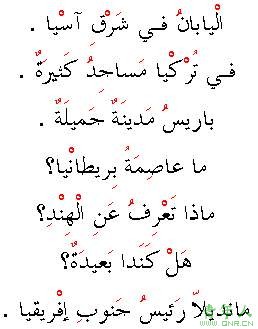 الْيابانُ في شَرْقِ آسْيا .
في تُرْكْيا مَساجِدُ كَثيرَةٌ .
باريسُ مَدينَةٌ جَميلَةٌ .
ما عاصِمَةُ بِريطانْيا؟
ماذا تَعْرِفُ عَنِ الْهِنْدِ؟
هَلْ كَنَدا بَعيدَةٌ؟
مانْديلاّ رَئيسُ جَنوبِ إفْريقيا .
www.QNR.CN